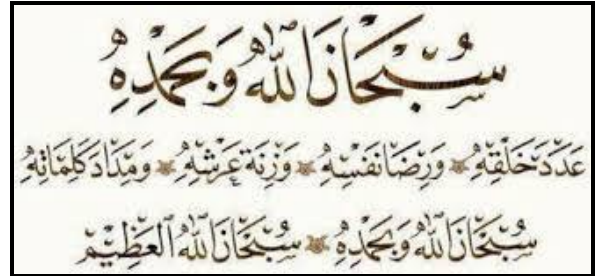 سُبْحَانَ اللهِ وَبِحَمْدِهِ
عَدَدَ خَلْقِهِ وَرِضَا نَفْسِهِ وَزِنَةَ عَرْشِهِ وَمِدَادَ كَلِمَاتِهِ
سُبْحَانَ اللهِ وَبِحَمْدِهِ سُبْحَانَ اللهِ العَظِيمِ